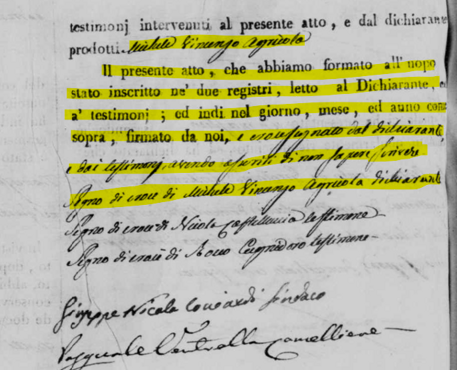 testimonj intervenuti al presente atto, e dal dichiarante
prodotti. Michele Vincenzo Agricola
Il presente atto, che abbiamo formato all'uopo
stato inscritto ne' due registri, letto al Dichiarante, ed
a' testimonj; ed indi nel giorno, mese, ed anno come
sopra, firmato da noi, e crocesegnato dal dichiarante
e dai testimonj, avendo asseriti di non sapere scrivere
Segno di croce di Michele Vincenzo Agricola dichiarante
Segno di croce di Nicola testimone
Segno di croce di Rocco testimone
Giuseppe Nicola Sindaco
Pasquale Cancelliere